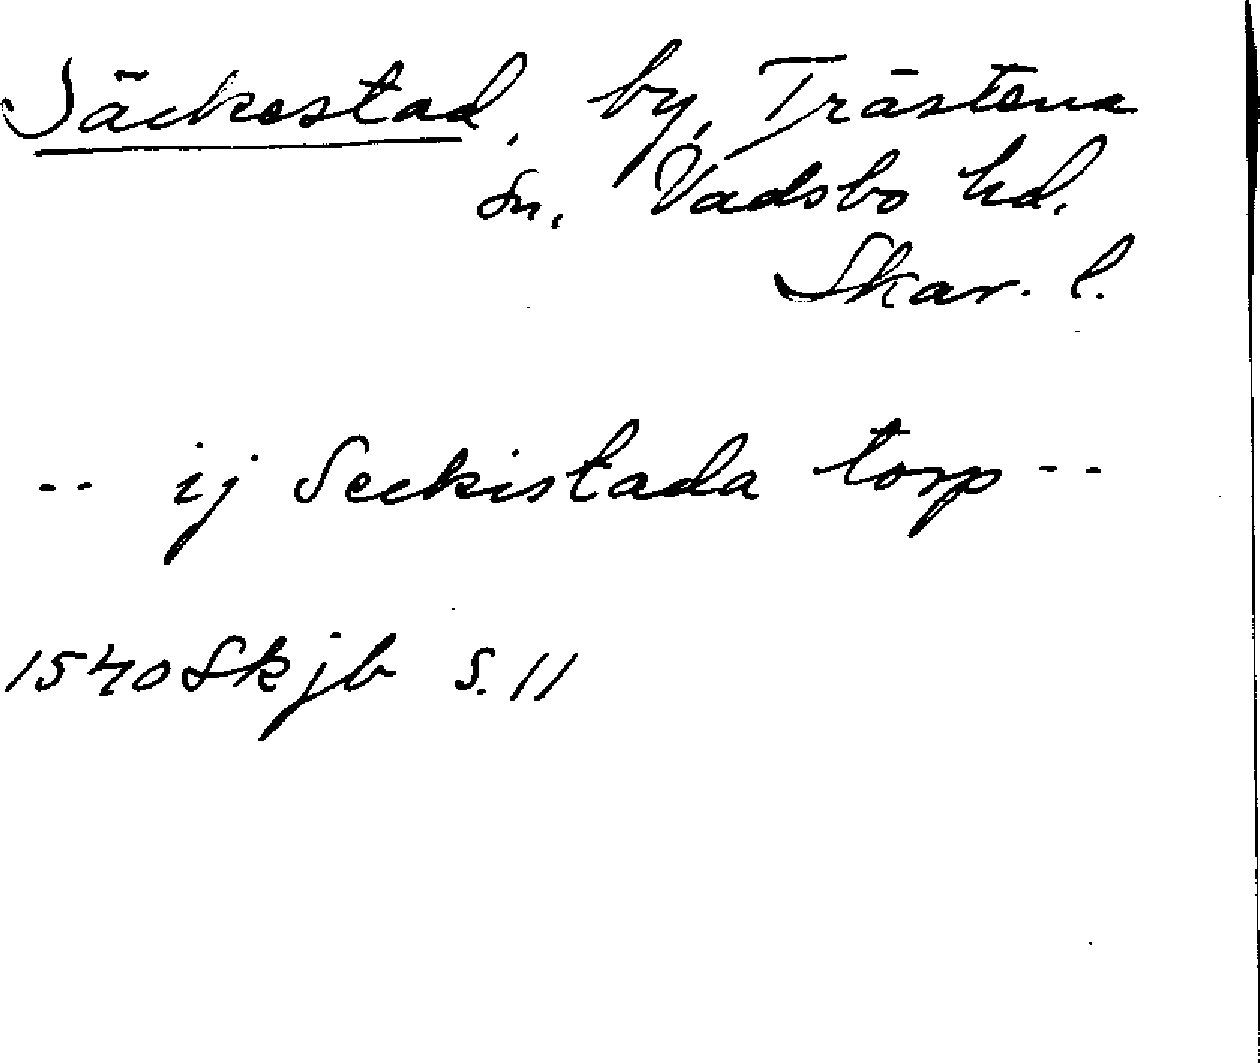 Säckestad, by, Trästena
sn, Vadsbo hd.
Skar. l.
-- ij Seckistada torp --
1540 Skjb S. 11